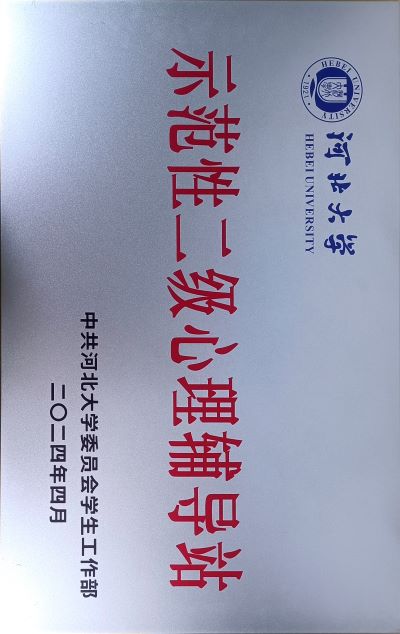 HEBEI UNIVERSITY
1921
河北大学
HEBEI UNIVERSITY
示范性二级心理辅导站
中共河北大学委员会学生工作部
二〇二四年四月